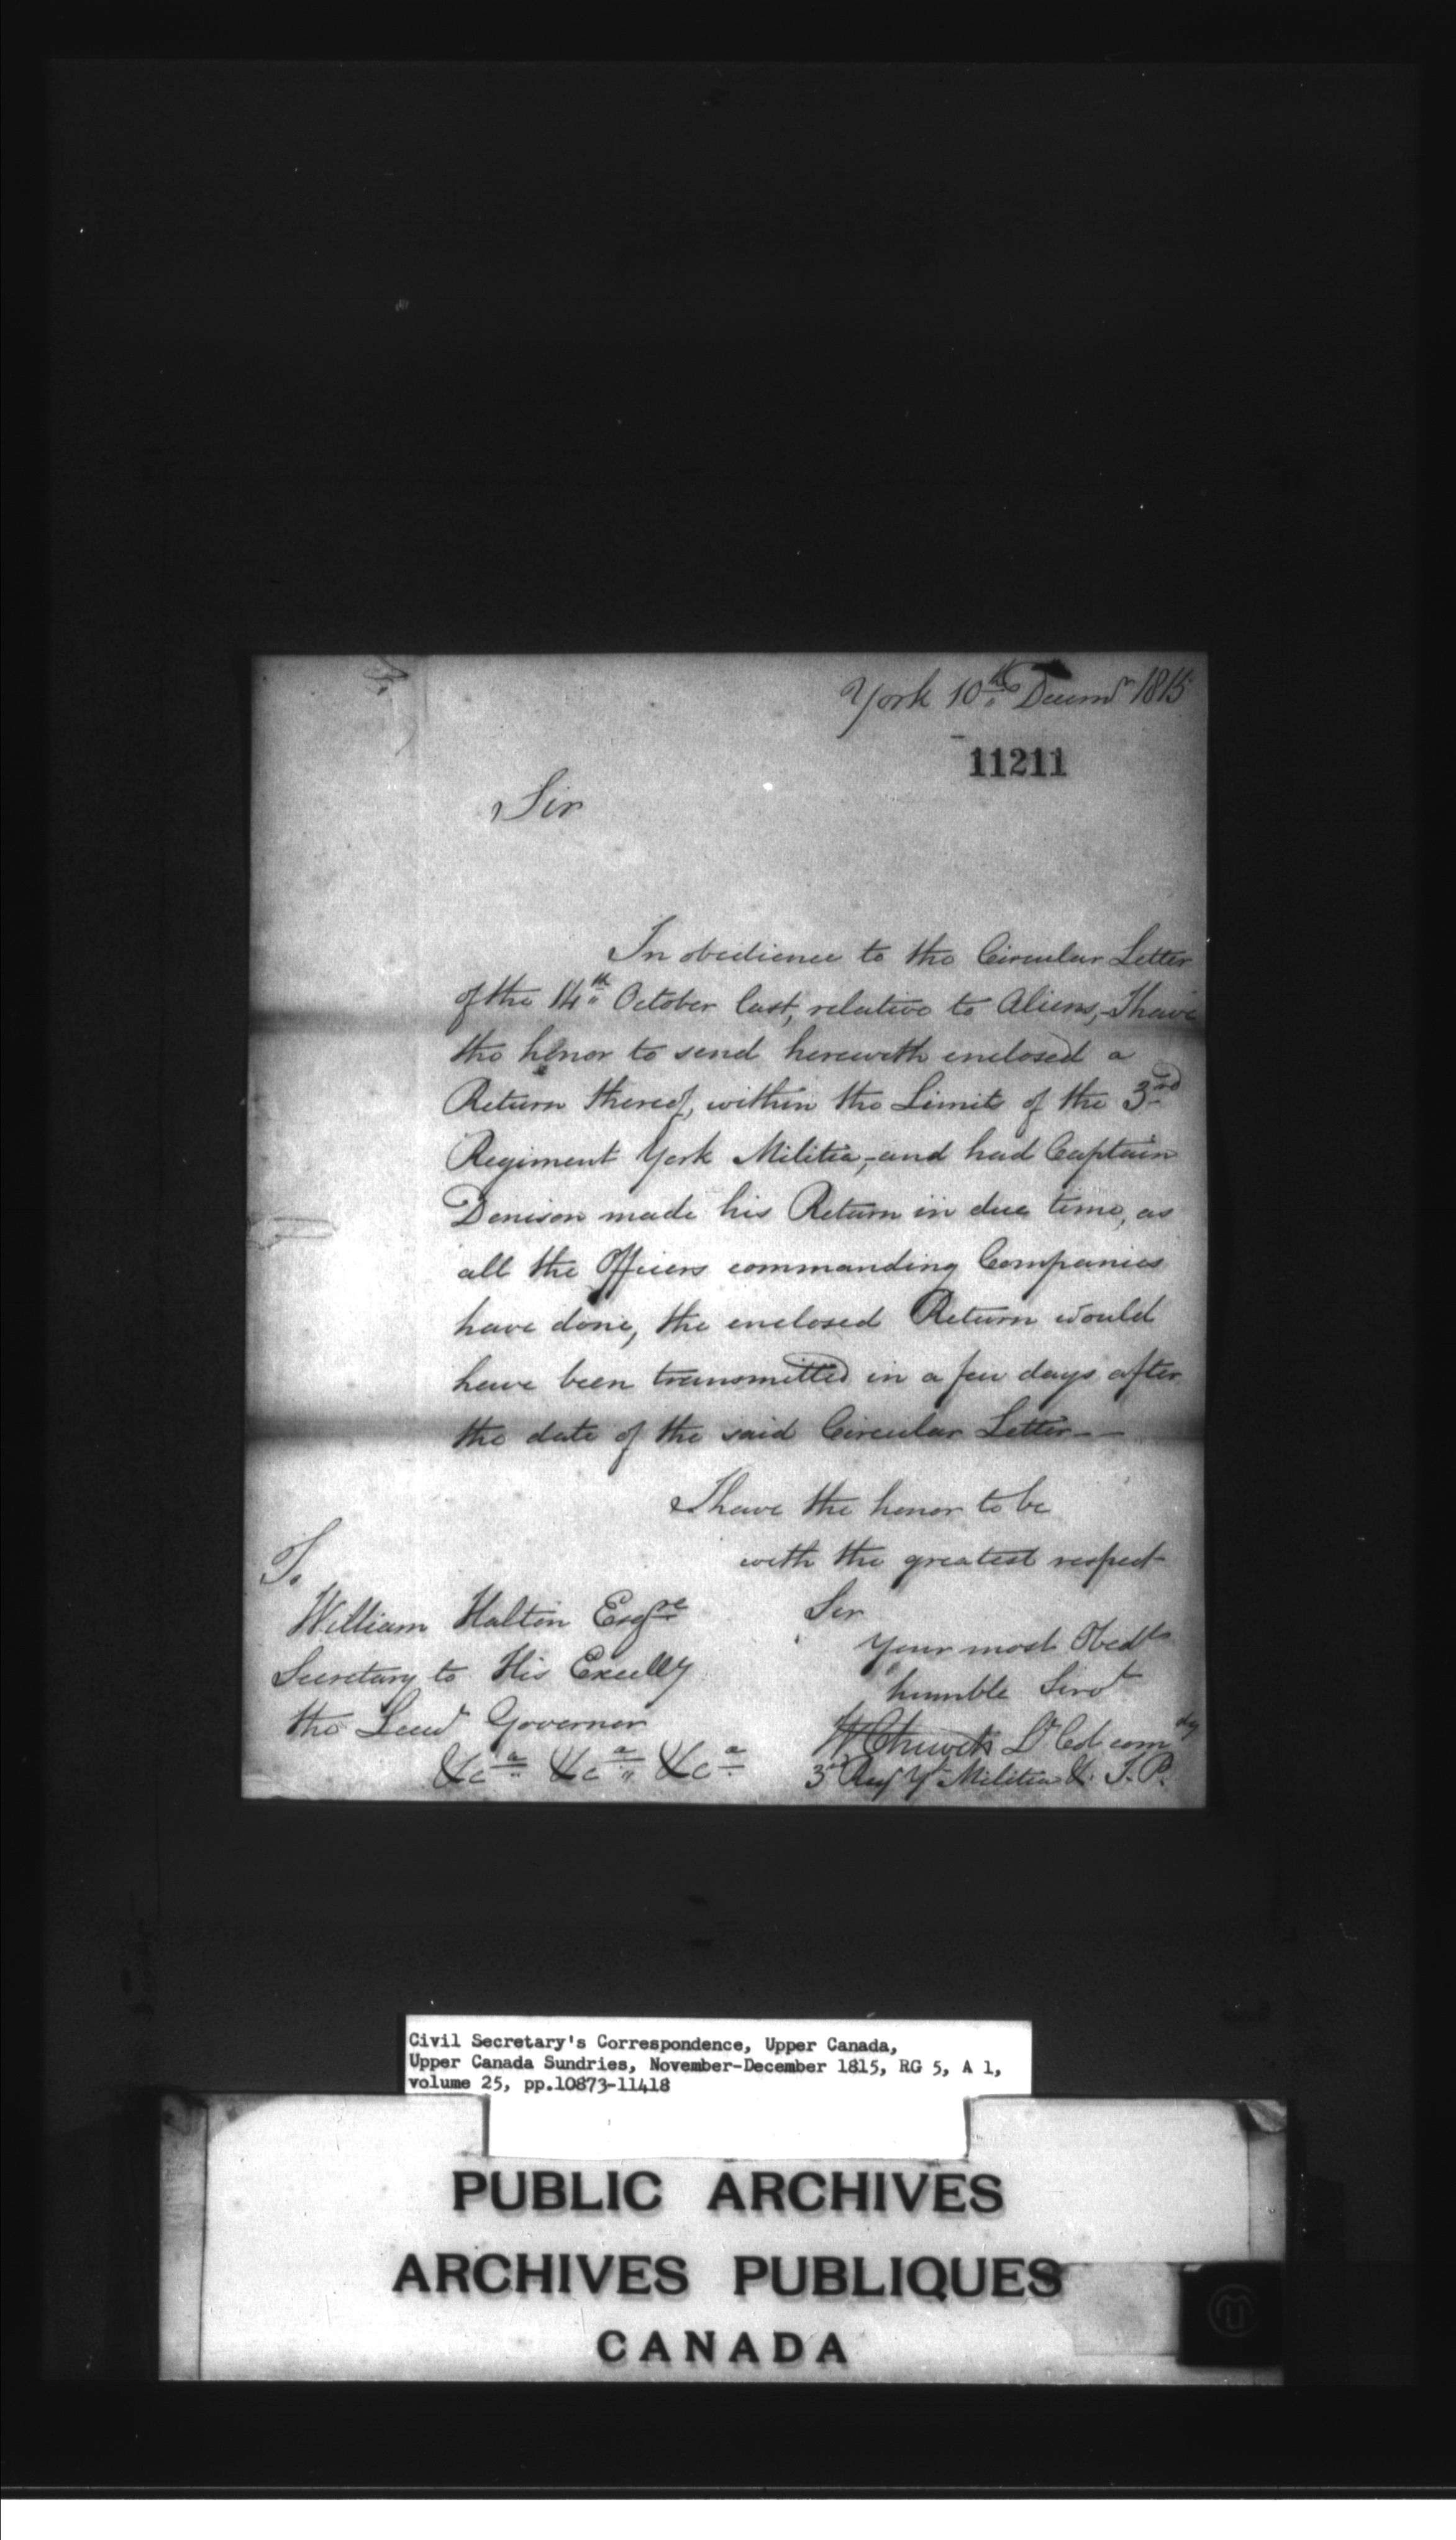 York 10th Decemr 1815
11211
Sir
In obedience to the Circular Letter
of the 14th October last, relative to Aliens,- I have
the honor to send herewith enclosed a
Return thereof, within the Limits of the 3rd
Regiment York Militia,- and had Captain
Denison made his Return in due time, as
all the Officers commanding Companies
have done, the enclosed Return would
have been transmitted in a few days after
the date of the said Circular Letter--
I have the honor to be
with the greatest respect
Sir
Your most Obedt
humble Servt
W Chewett Lt Col comdg
3d Reg Y Militia & J.P.
To
William Halton Esqre
Secretary to His Excelly
the Lieut Governor
&ca &ca &ca
Civil Secretary's Correspondence, Upper Canada,
Upper Canada Sundries, November-December 1815, RG 5, A 1,
volume 25, pp.10873-11418
PUBLIC ARCHIVES
ARCHIVES PUBLIQUES
CANADA